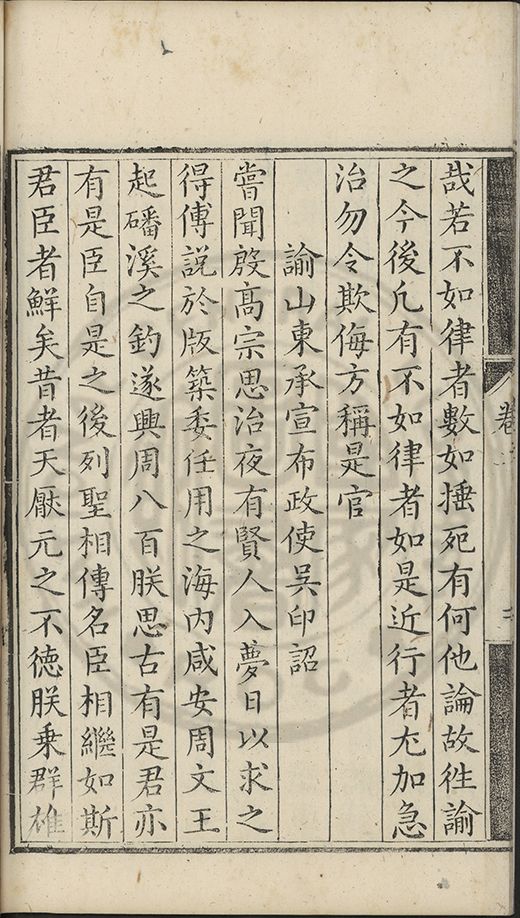 哉若不如律者數如捶死有何他論故徃諭
之今後凢有不如律者如是近行者尤加急
治勿令欺侮方稱是官
諭山東承宣布政使吳印詔
甞聞殷髙宗思治夜有賢人入夢日以求之
得傅說於版築委任用之海内咸安周文王
起磻溪之釣遂興周八百朕思古有是君亦
有是臣自是之後列聖相傳名臣相繼如斯
君臣者鮮矣昔者天厭元之不徳朕乗群雄
卷